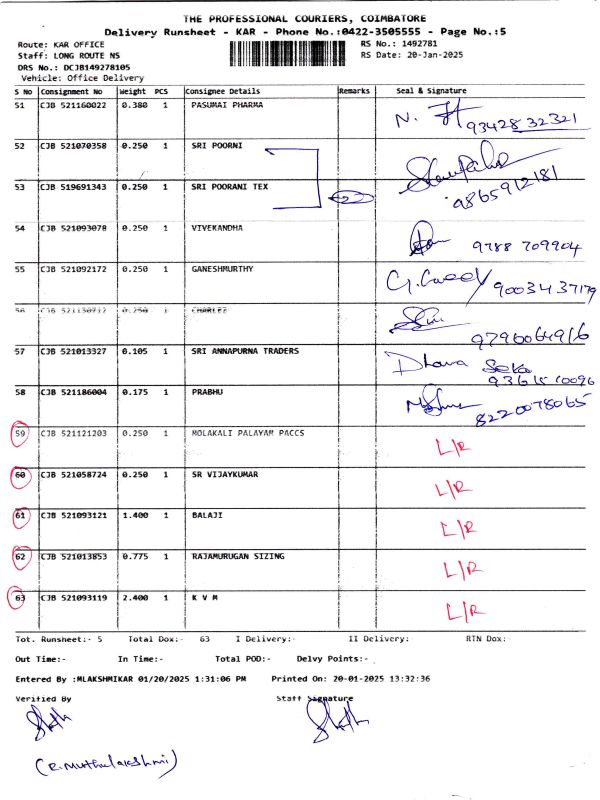 THE PROFESSIONAL COURIERS, COIMBATORE
Delivery Runsheet - KAR - Phone No.:0422-3505555 - Page No.:5
Route: KAR OFFICE RS No.: 1492781
Staff: LONG ROUTE NS RS Date: 20-Jan-2025
DRS No.: DCJB149278105
Vehicle: Office Delivery
S No Consignment No Weight PCS Consignee Details Remarks Seal & Signature
51 CJB 521160022 0.380 1 PASUMAI PHARMA N. 9342832321
52 CJB 521070358 0.250 1 SRI POORNI
53 CJB 519691343 0.250 1 SRI POORANI TEX 9865912181
54 CJB 521093078 0.250 1 VIVEKANDHA 9788 709904
55 CJB 521092172 0.250 1 GANESHMURTHY 9003437179
56 CJB 521130912 0.250 1 CHARLEZ 9796064916
57 CJB 521013327 0.105 1 SRI ANNAPURNA TRADERS Dhana
58 CJB 521186004 0.175 1 PRABHU 8220078065
59 CJB 521121203 0.250 1 MOLAKALI PALAYAM PACCS L/R
60 CJB 521058724 0.250 1 SR VIJAYKUMAR L/R
61 CJB 521093121 1.400 1 BALAJI L/R
62 CJB 521013853 0.775 1 RAJAMURUGAN SIZING L/R
63 CJB 521093119 2.400 1 K V M L/R
Tot. Runsheet:- 5 Total Dox:- 63 I Delivery:- II Delivery:- RTN Dox:-
Out Time:- In Time:- Total POD:- Delvy Points:-
Entered By :MLAKSHMIKAR 01/20/2025 1:31:06 PM Printed On: 20-01-2025 13:32:36
Verified By Staff Signature
(R. Muthulakshmi)